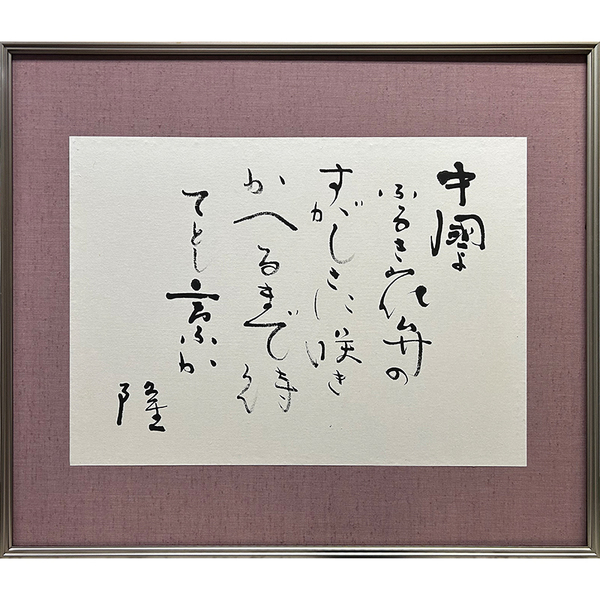 中國よ
ふるき花弁の
すがしさに咲き
かへるまで
てとし言ふか
隆